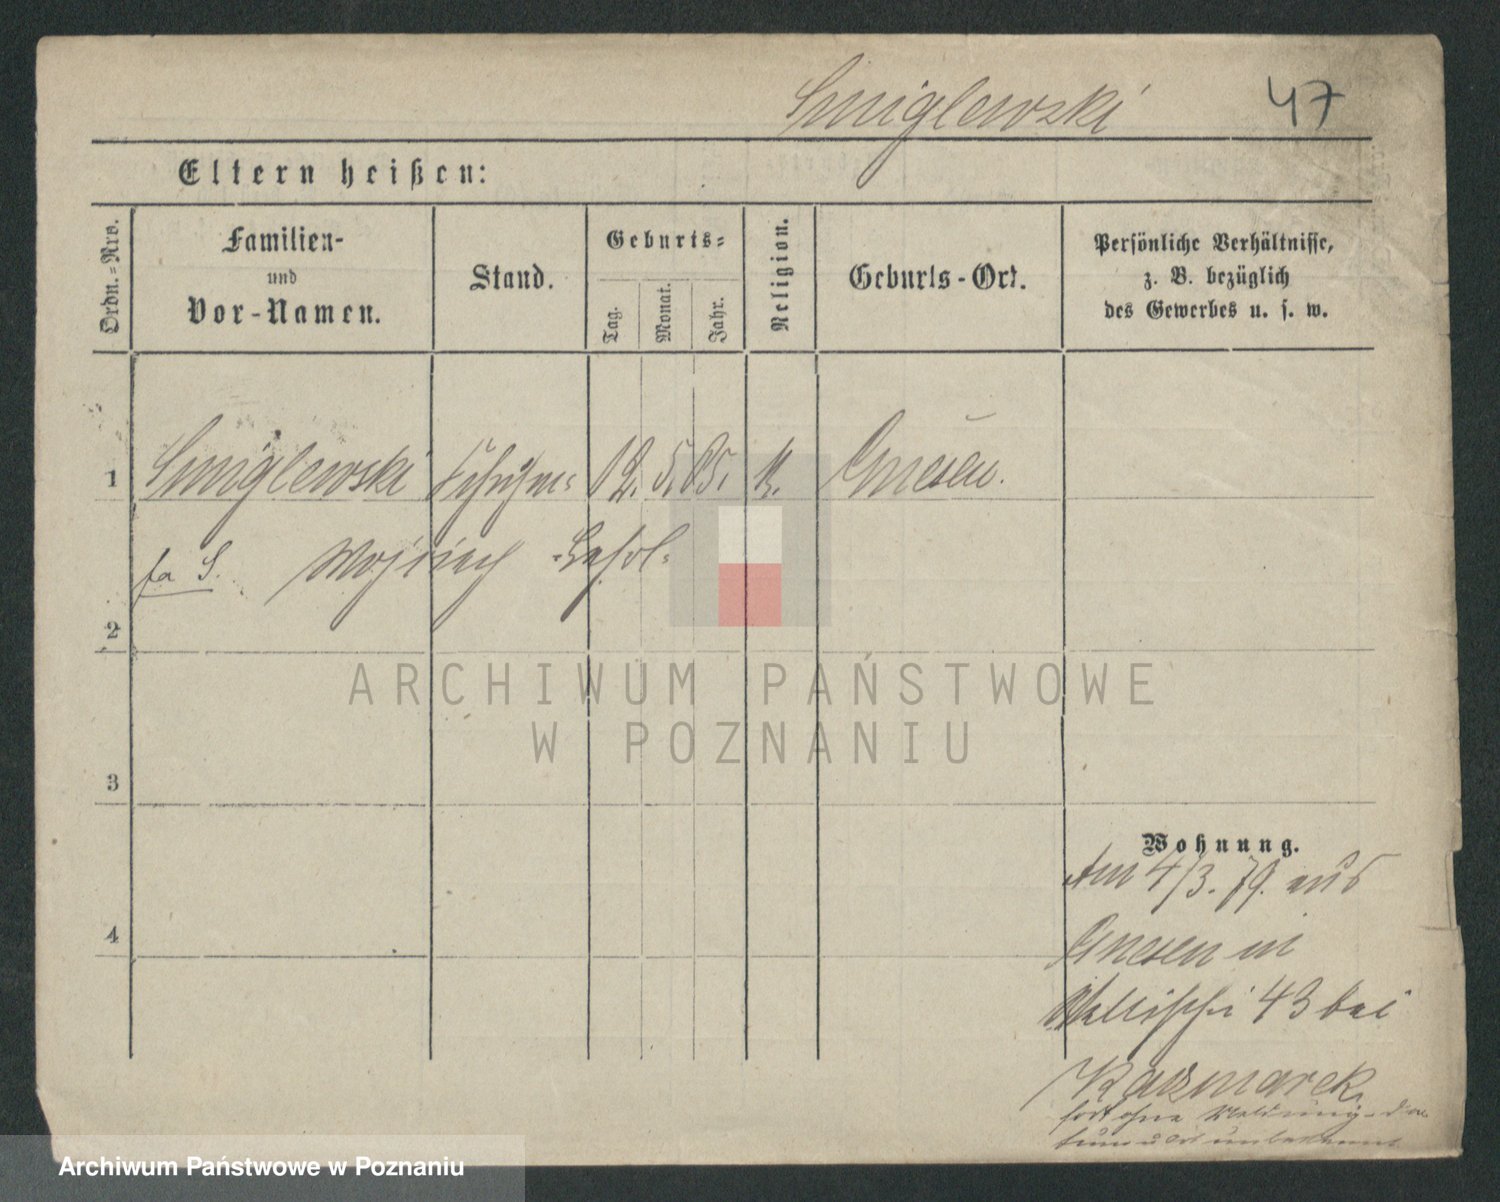 Smiglewski 47
Eltern heißen:
Ordn.=Nro.
Familien-
und
Vor-Namen.
Stand.
Geburts=
Tag.
Monat.
Jahr.
Religion.
Geburts-Ort.
Persönliche Verhältnisse,
z. B. bezüglich
des Gewerbes u. s. w.
1 Smiglewski 12. 5. K. Gnesen.
S. Wojciech
2
3
4
Wohnung.
Am 4/3. 79. aus
Gnesen in
Wallischei 43 bei
Kaczmarek
fort ohne Meldung
unbekannt
ARCHIWUM PAŃSTWOWE
W POZNANIU
Archiwum Państwowe w Poznaniu